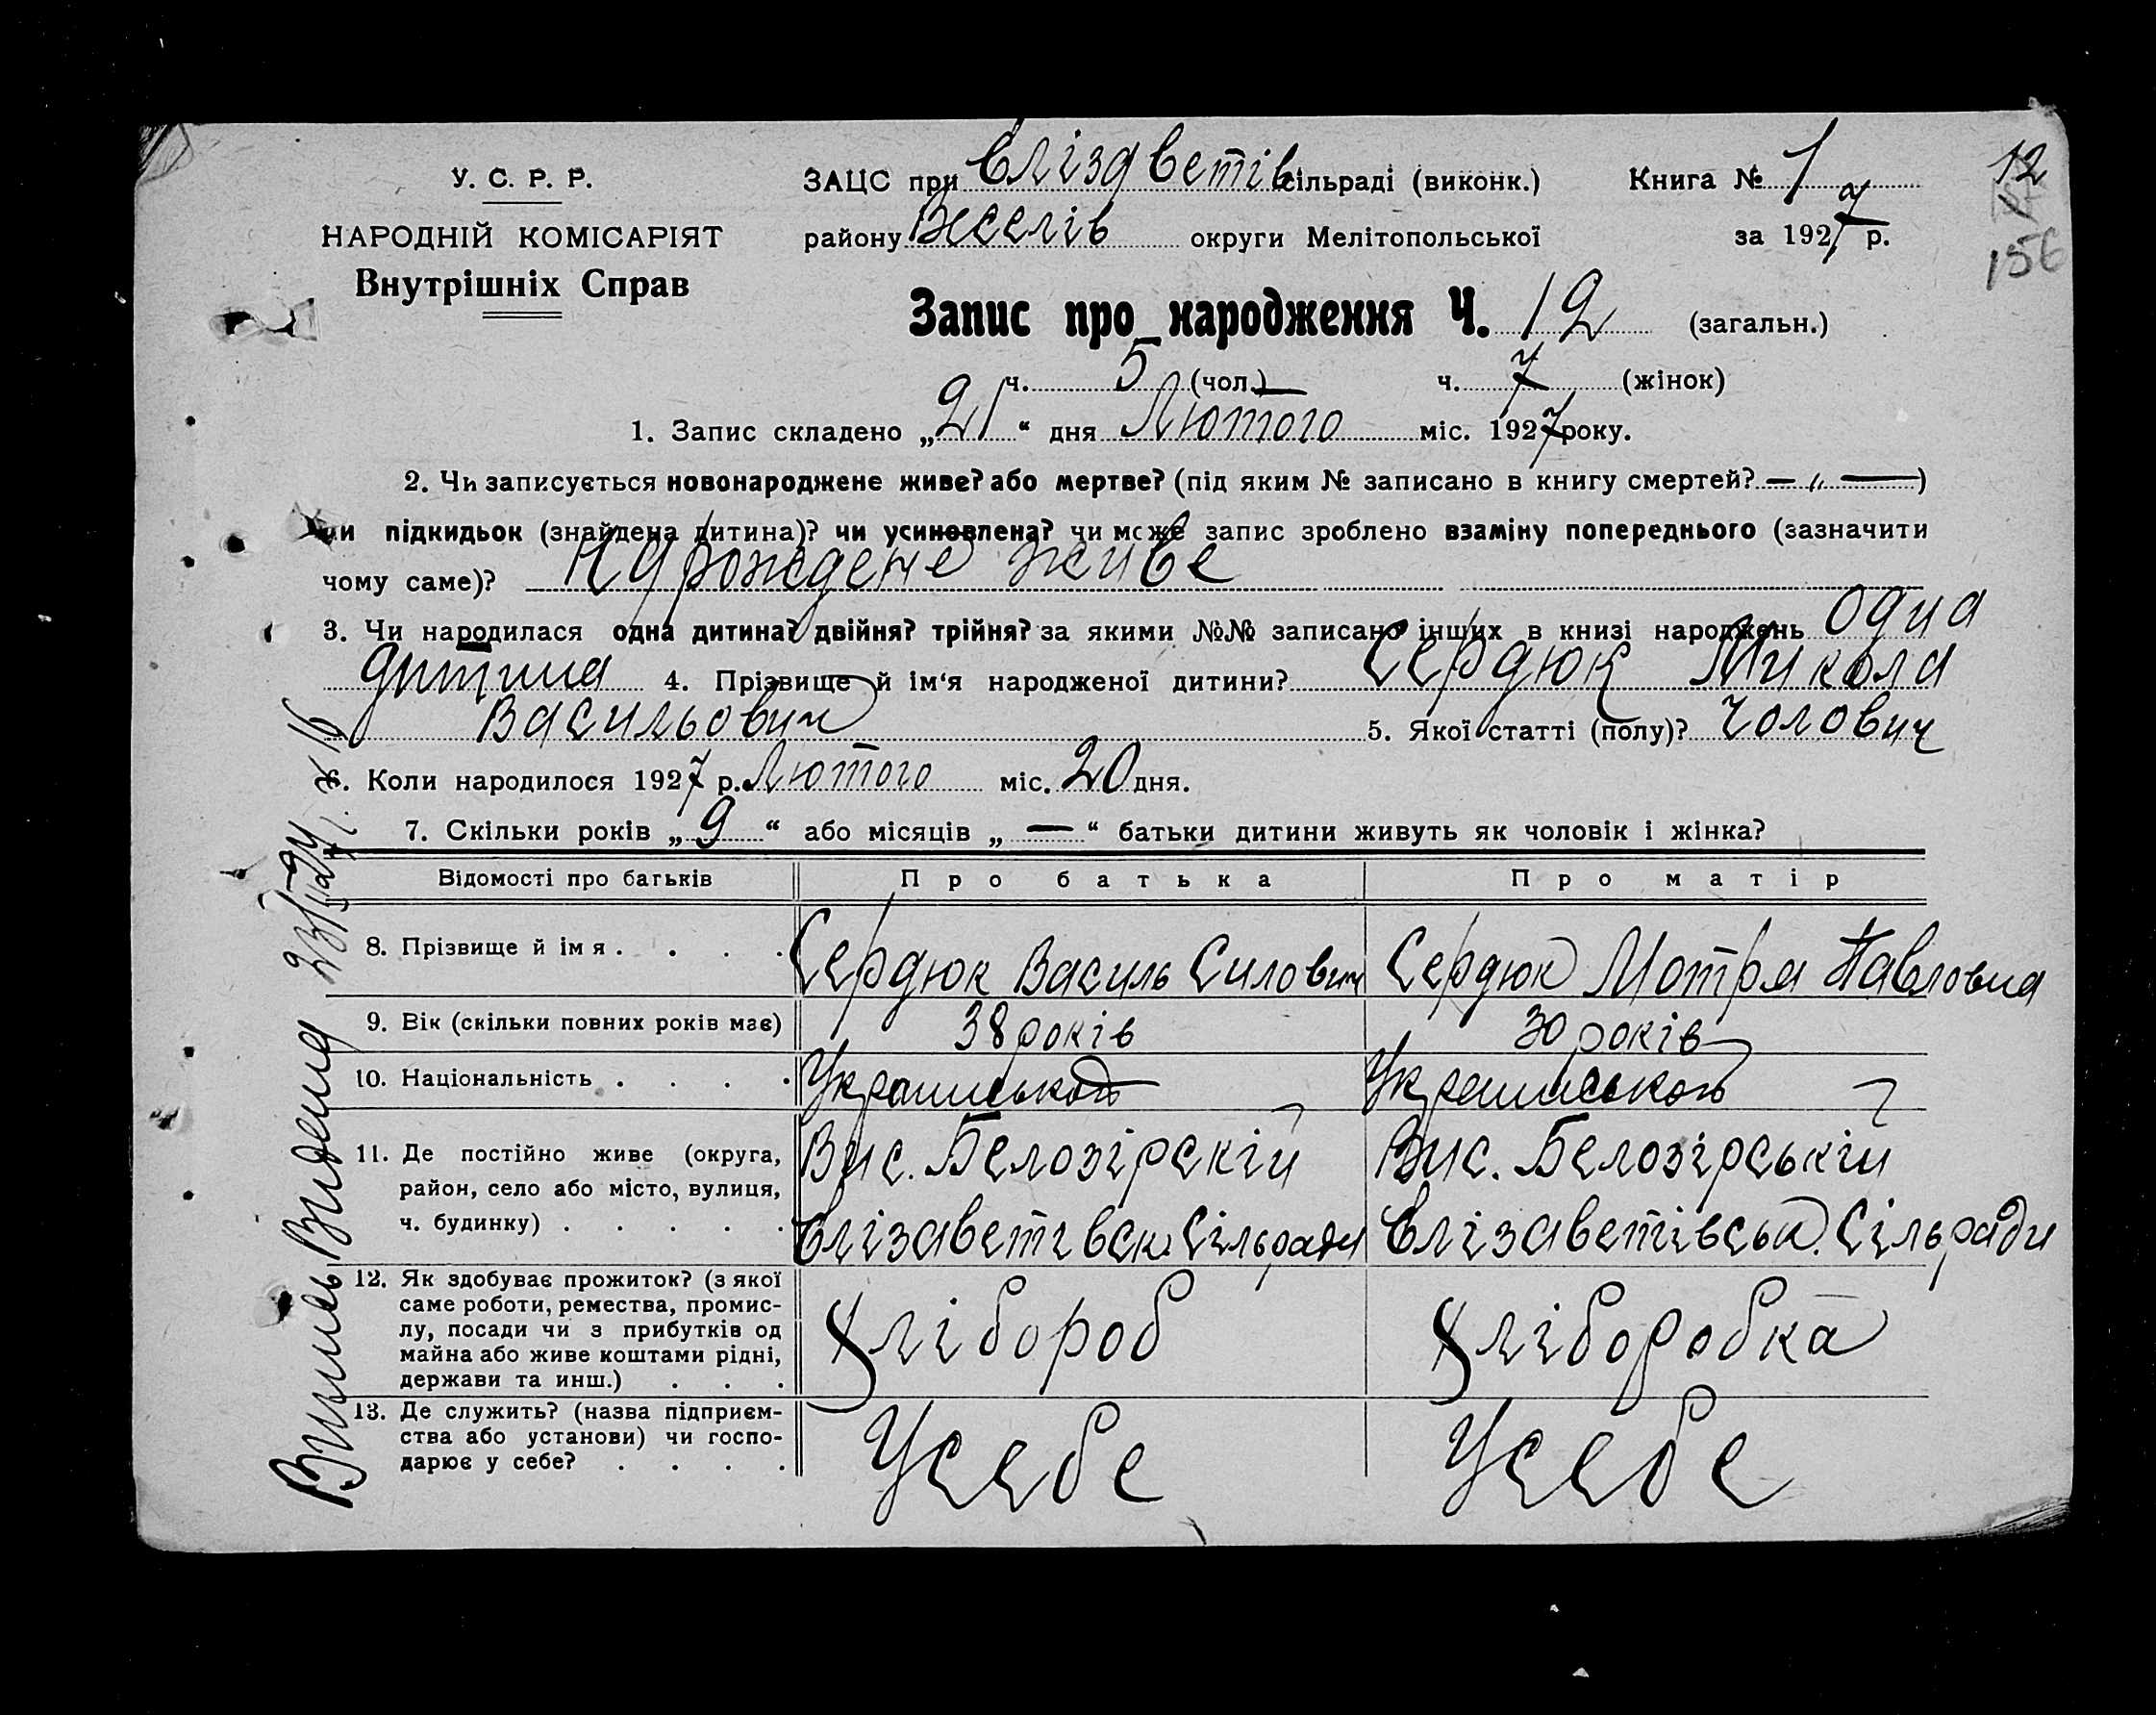 У. С. Р. Р.
НАРОДНІЙ КОМІСАРІЯТ
Внутрішніх Справ
ЗАЦС при Єлізаветів сільраді (виконк.) Книга № 1
району Веселів округи Мелітопольської за 1927 р.
12
156
Запис про народження Ч. 12 (загальн.)
ч. 5 (чол.) ч. 7 (жінок)
1. Запис складено „21“ дня Лютого міс. 1927 року.
2. Чи записується новонароджене живе? або мертве? (під яким № записано в книгу смертей? — „ —)
чи підкидьок (знайдена дитина)? чи усиновлена? чи може запис зроблено взаміну попереднього (зазначити
чому саме)? Нарождене живе
3. Чи народилася одна дитина? двійня? трійня? за якими №№ записано інших в книзі народжень Одна
дитина 4. Прізвище й ім‘я народженої дитини? Сердюк Микола
Васильович 5. Якої статті (полу)? Чолович
6. Коли народилося 1927 р. Лютого міс. 20 дня.
7. Скільки років „9“ або місяців „—“ батьки дитини живуть як чоловік і жінка?
Відомості про батьків Про батька Про матір
8. Прізвище й ім я . . . . Сердюк Василь Силович Сердюк Мотря Павловна
9. Вік (скільки повних років має) 38 років 30 років
10. Національність . . . .
11. Де постійно живе (округа, Вис. Белозірскій Вис. Белозірській
район, село або місто, вулиця,
ч. будинку) . . . . . Єлізаветівск. Сільради Єлізаветівськ. Сільради
12. Як здобуває прожиток? (з якої
саме роботи, ремества, промис-
лу, посади чи з прибутків од Хлібороб Хліборобка
майна або живе коштами рідні,
держави та инш.) . . .
13. Де служить? (назва підприєм-
ства або установи) чи госпо- Усебе Усебе
дарює у себе? . . . .
Выпись Видена